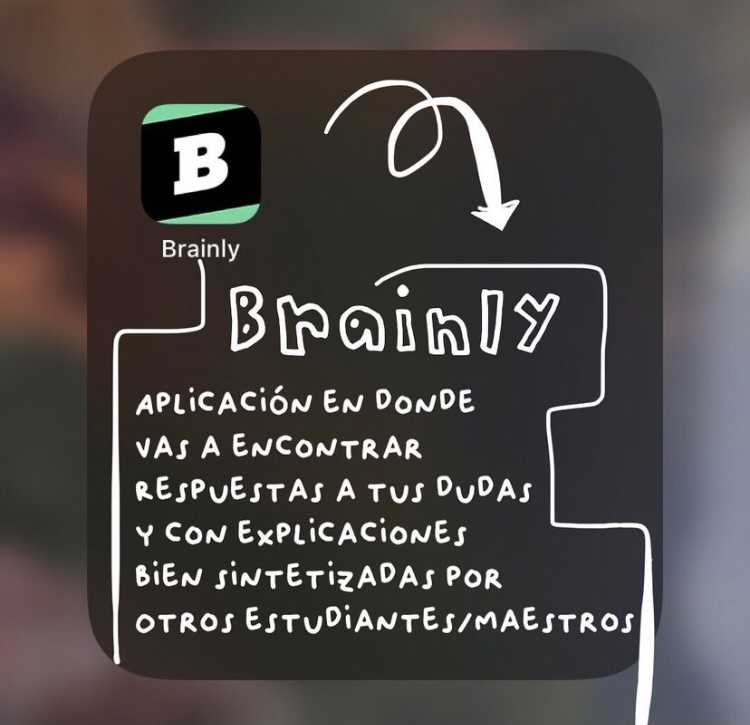 B
Brainly
Brainly
APLiCACiÓN EN DONDE
VAS A ENCONTRAR
RESPUESTAS A TUS DUDAS
Y CON EXPLiCACiONES
BiEN SiNTETiZADAS POR
OTROS ESTUDiANTES/MAESTROS